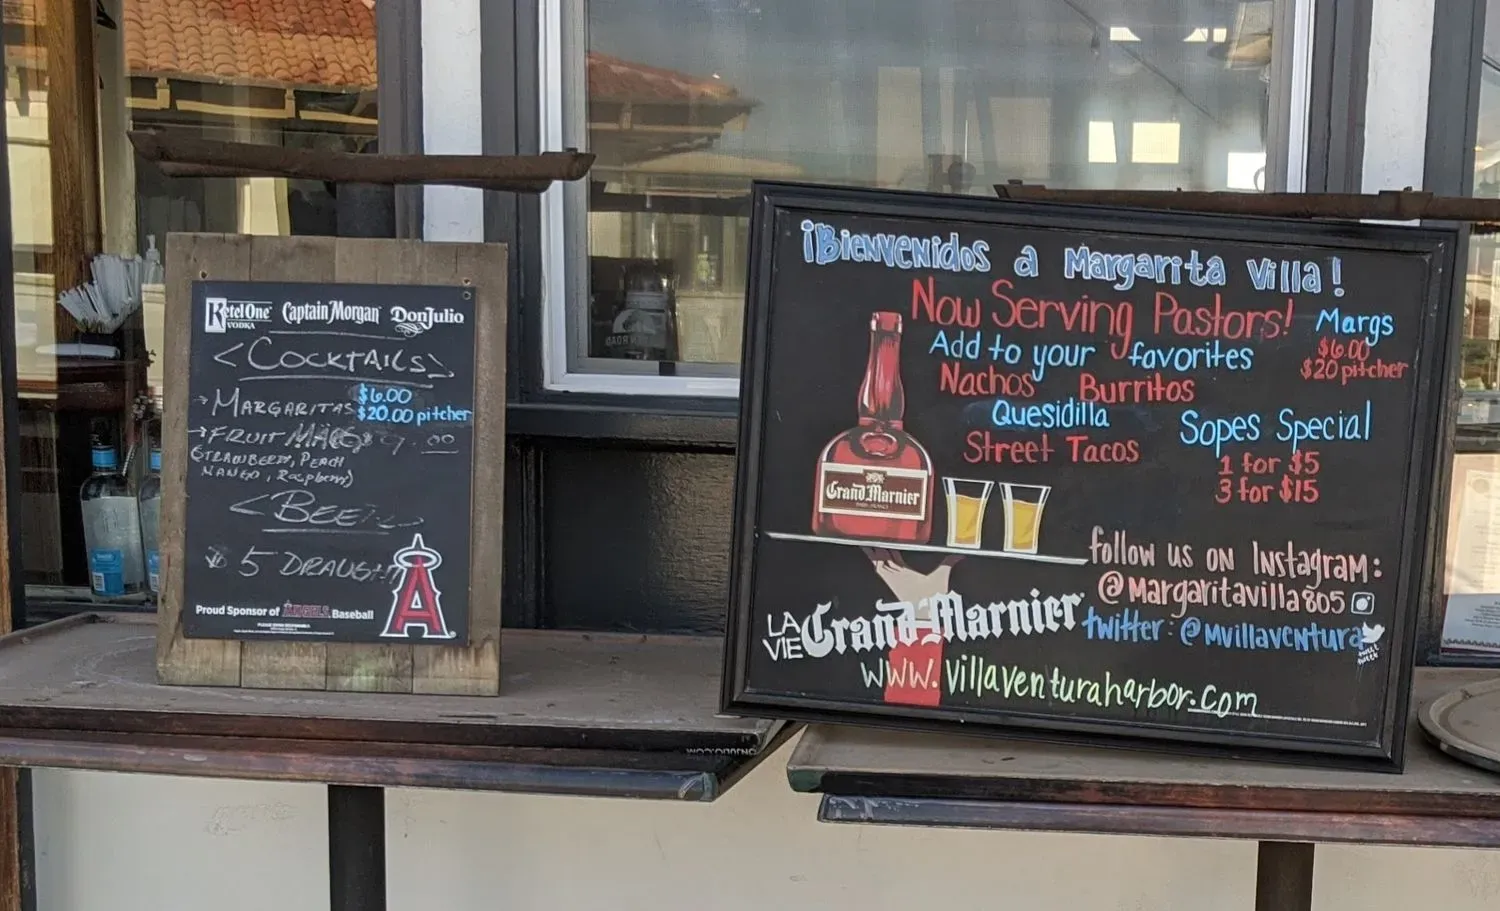 Ketel One
VODKA
Captain Morgan
Don Julio
COCKTAILS
MARGARITAS $6.00
$20.00 pitcher
FRUIT MARGS
STRAWBERRY, PEACH
MANGO, Raspberry)
BEER
5 DRAUGHT
Proud Sponsor of ANGELS Baseball
A
¡Bienvenidos a Margarita Villa!
Now Serving Pastors!
Add to your favorites
Nachos Burritos
Quesidilla
Street Tacos
Margs
$6.00
$20 pitcher
Sopes Special
1 for $5
3 for $15
Grand Marnier
follow us on Instagram:
@Margaritavilla805
twitter: @MVillaventura
LA VIE Grand Marnier
www.villaventuraharbor.com